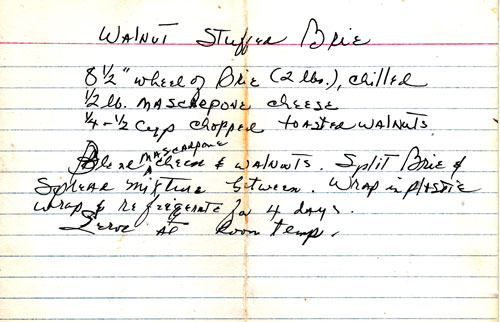 Walnut Stuffed Brie
8 1/2" wheel of Brie (2 lbs.), chilled
1/2 lb. mascarpone cheese
1/4 - 1/2 cup chopped toasted walnuts
mascarpone
Blend cheese & walnuts. Split Brie &
spread mixture between. Wrap in plastic
wrap & refrigerate for 4 days.
Serve at room temp.